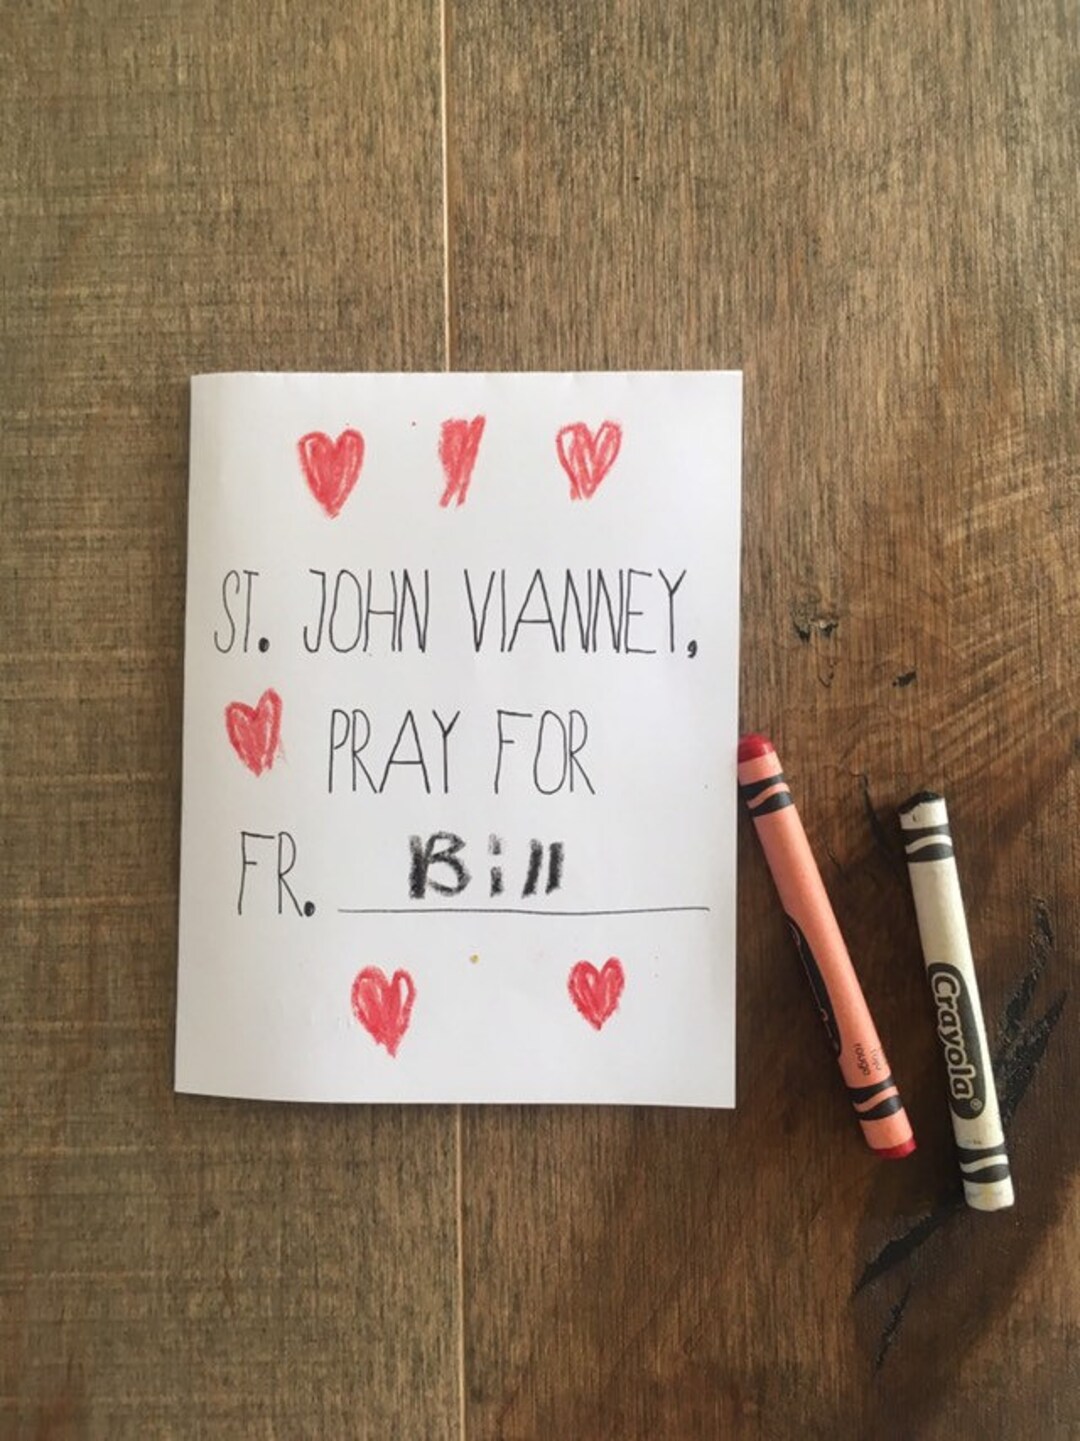 ST. JOHN VIANNEY,
PRAY FOR
FR. Bill
rouge
Crayola®